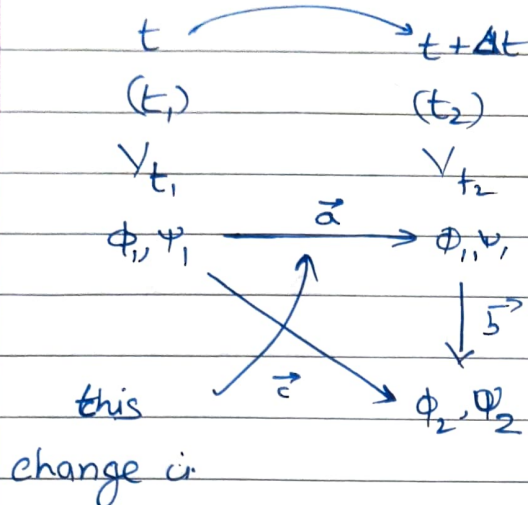 t t + Δt
(t₁) (t₂)
V_t₁ V_t₂
a⃗
ϕ₁, ψ₁ ϕ₁, ψ₁
b⃗
c⃗
this ϕ₂, ψ₂
change is